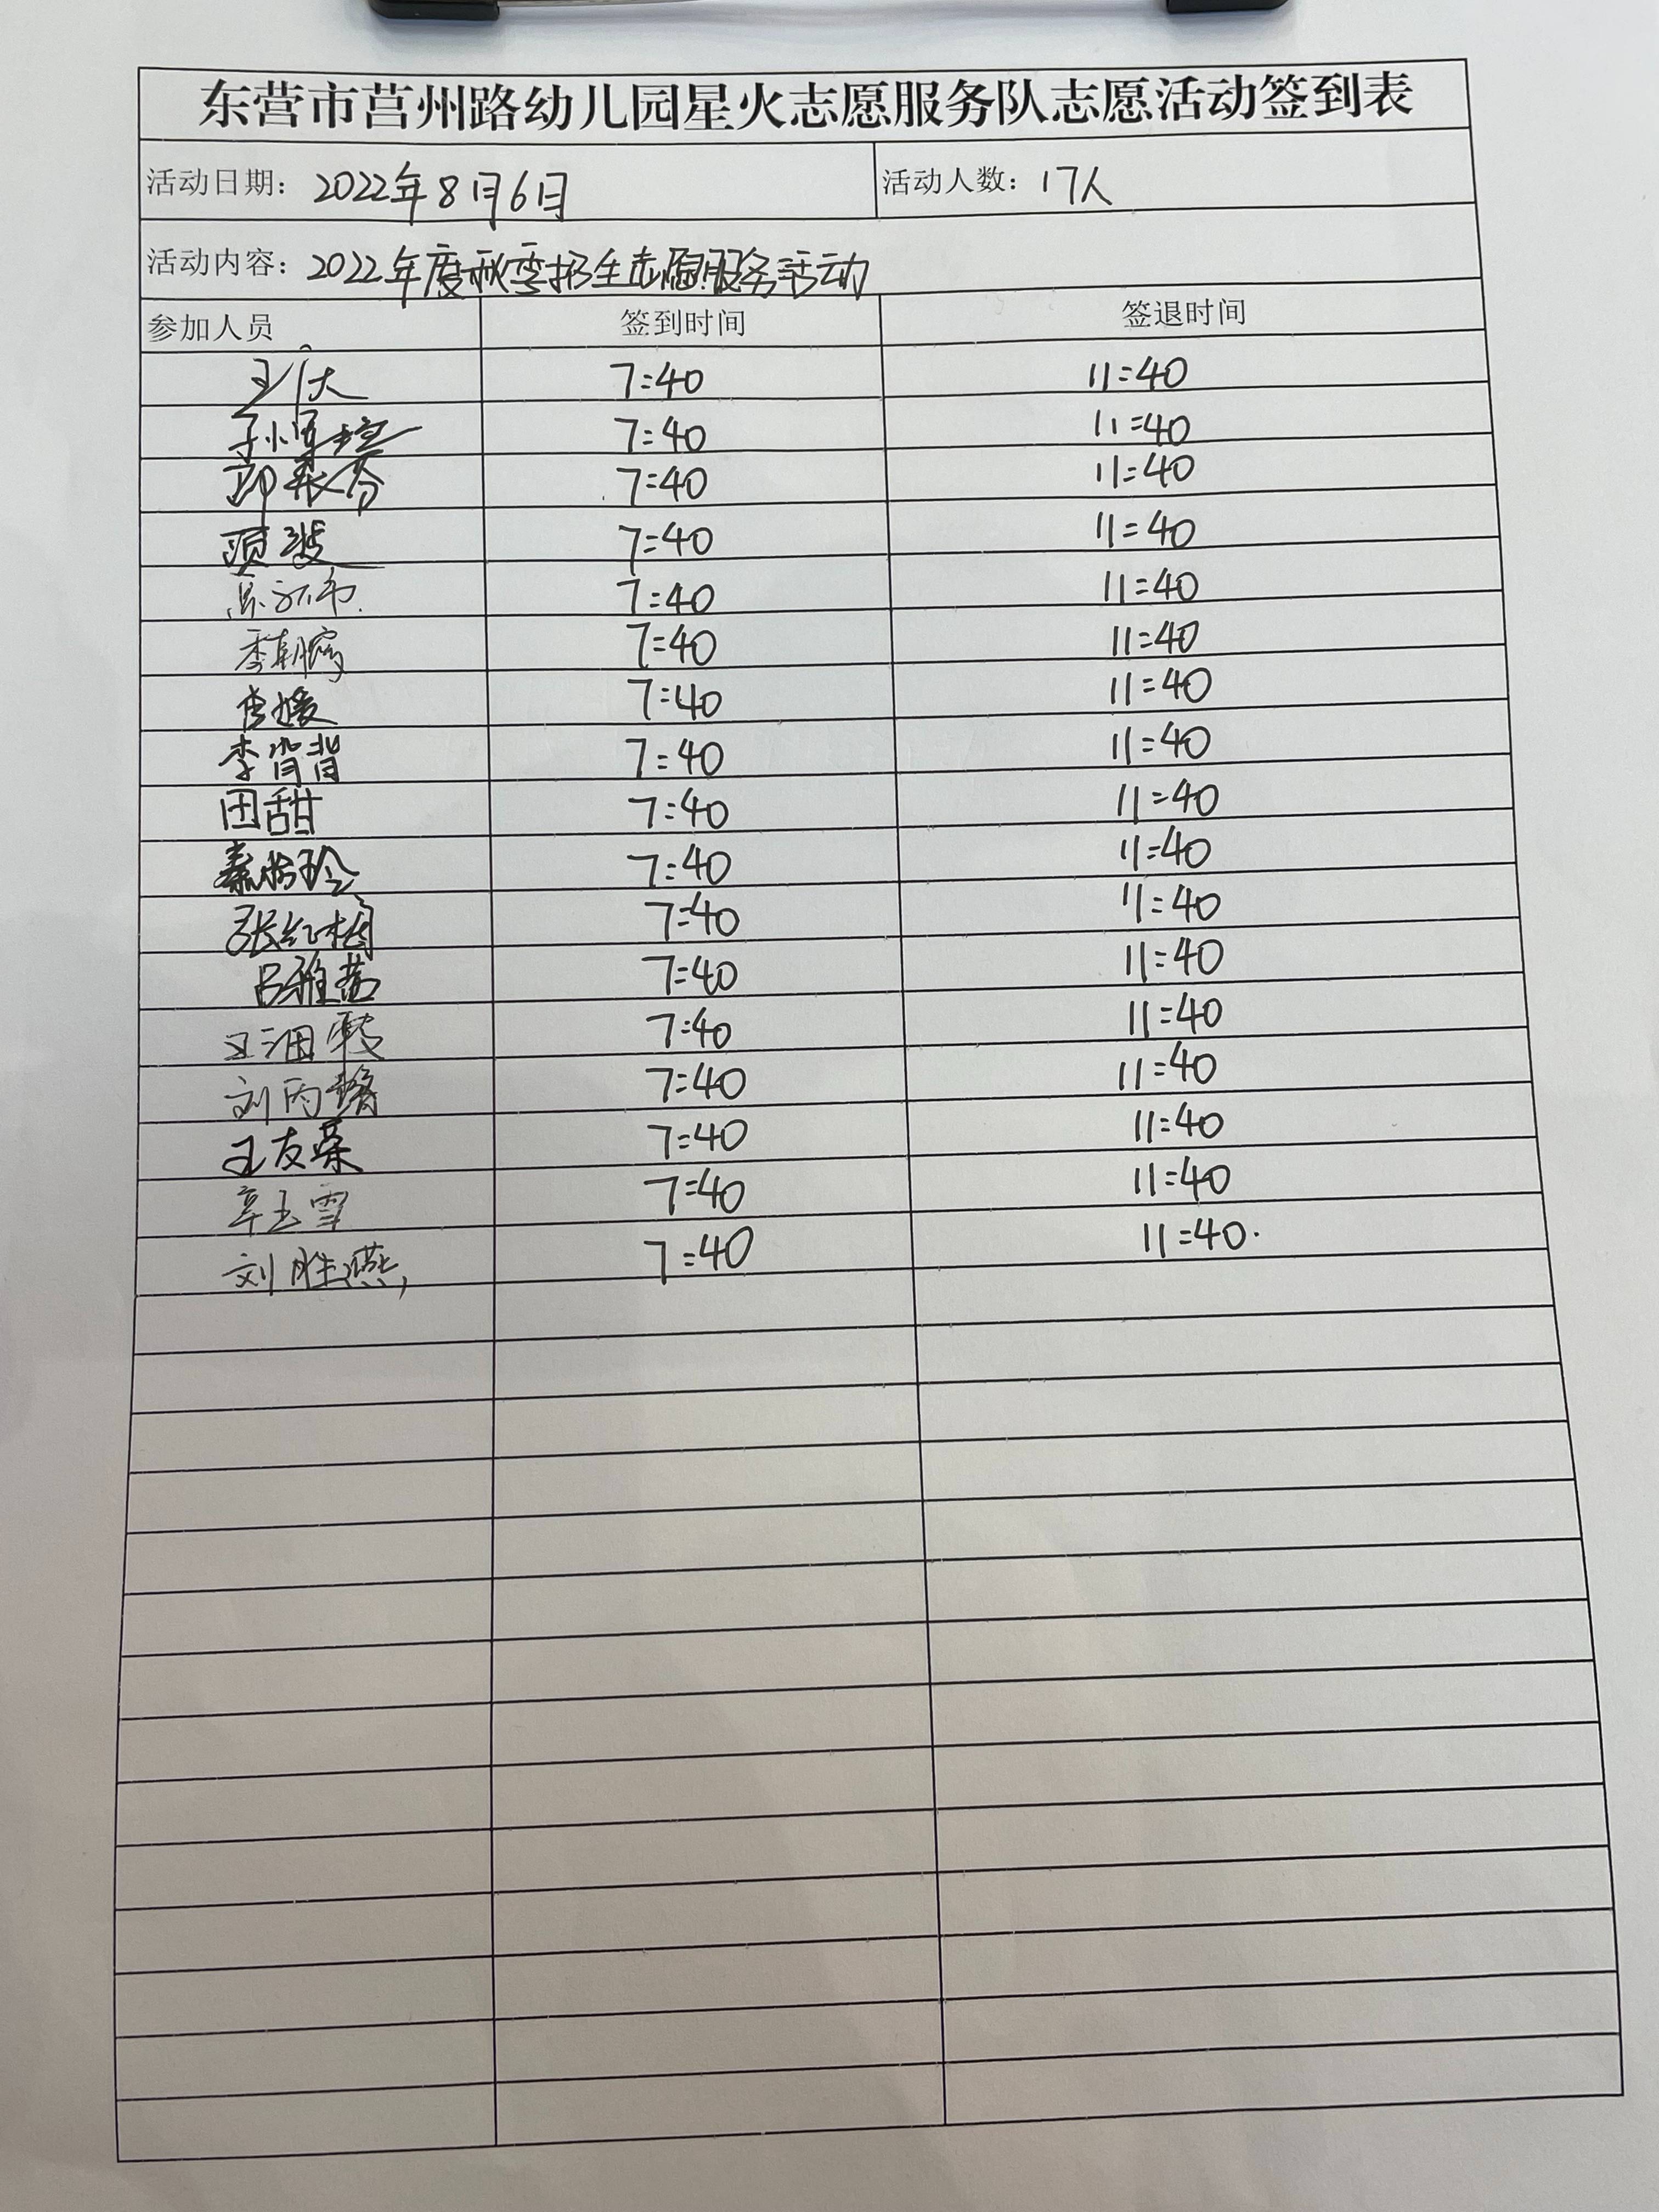 东营市莒州路幼儿园星火志愿服务队志愿活动签到表
活动日期：2022年8月6日 活动人数：17人
活动内容：2022年度秋季招生志愿服务活动
参加人员 签到时间 签退时间
7:40 11:40
7:40 11:40
7:40 11:40
项波 7:40 11:40
7:40 11:40
季朝霞 7:40 11:40
李媛 7:40 11:40
李肖背 7:40 11:40
田甜 7:40 11:40
秦 玲 7:40 11:40
张红梅 7:40 11:40
吕雅茹 7:40 11:40
王 7:40 11:40
刘丙 7:40 11:40
王友荣 7:40 11:40
辛玉雪 7:40 11:40
刘胜燕 7:40 11:40